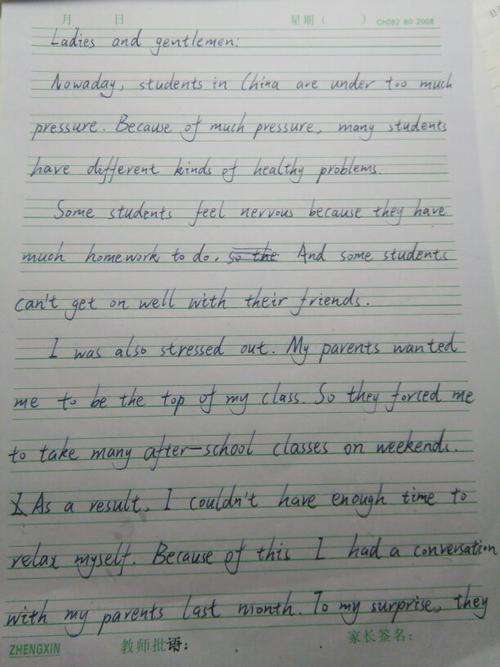 月 日 星期（ ） CH082 80 2008
Ladies and gentlemen:
Nowaday, students in China are under too much
pressure. Because of much pressure, many students
have different kinds of healthy problems.
Some students feel nervous because they have
much homework to do. so the And some students
can't get on well with their friends.
I was also stressed out. My parents wanted
me to be the top of my class. So they forced me
to take many after-school classes on weekends.
As a result, I couldn't have enough time to
relax myself. Because of this I had a conversation
with my parents last month. To my surprise, they
ZHENGXIN 教师批语: 家长签名: